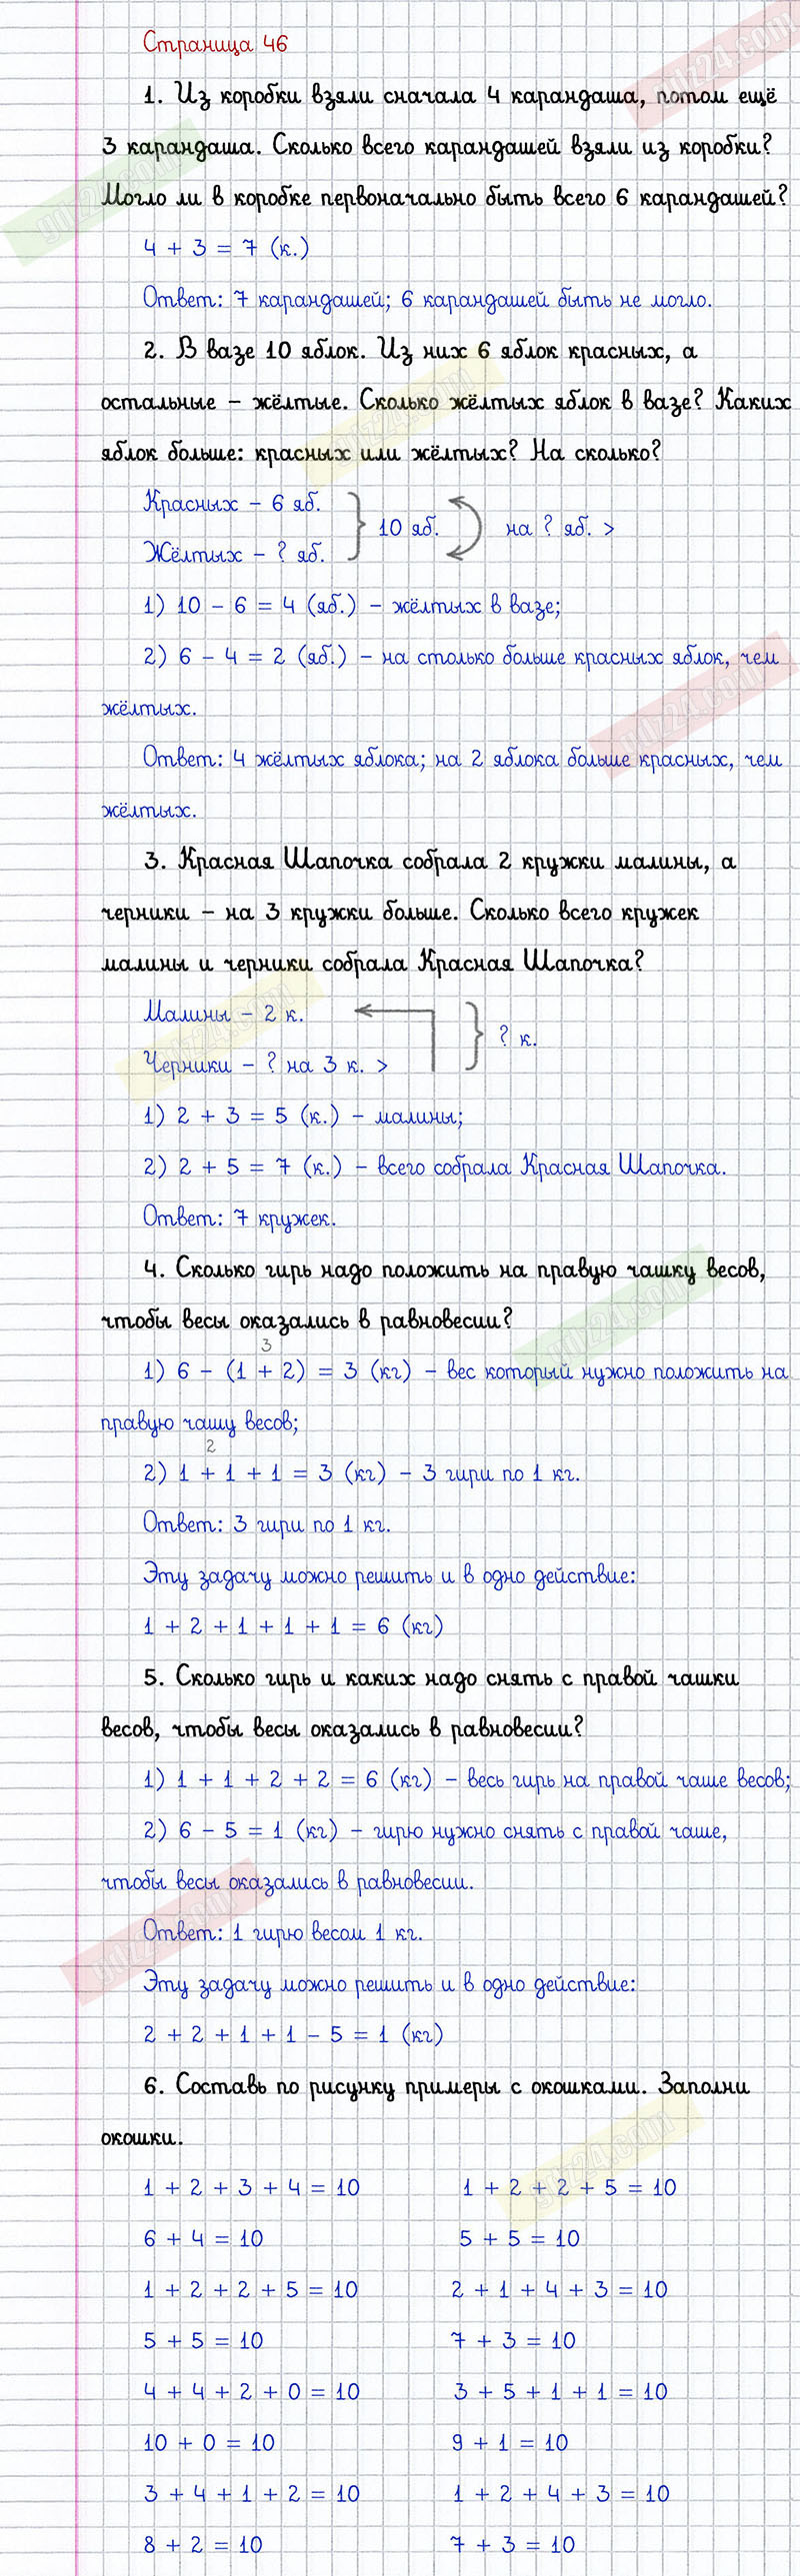 Страница 46
1. Из коробки взяли сначала 4 карандаша, потом ещё
3 карандаша. Сколько всего карандашей взяли из коробки?
Могло ли в коробке первоначально быть всего 6 карандашей?
4 + 3 = 7 (к.)
Ответ: 7 карандашей; 6 карандашей быть не могло.
2. В вазе 10 яблок. Из них 6 яблок красных, а
остальные – жёлтые. Сколько жёлтых яблок в вазе? Каких
яблок больше: красных или жёлтых? На сколько?
Красных – 6 яб.
10 яб. на ? яб. >
Жёлтых – ? яб.
1) 10 – 6 = 4 (яб.) – жёлтых в вазе;
2) 6 – 4 = 2 (яб.) – на столько больше красных яблок, чем
жёлтых.
Ответ: 4 жёлтых яблока; на 2 яблока больше красных, чем
жёлтых.
3. Красная Шапочка собрала 2 кружки малины, а
черники – на 3 кружки больше. Сколько всего кружек
малины и черники собрала Красная Шапочка?
Малины – 2 к.
? к.
Черники – ? на 3 к. >
1) 2 + 3 = 5 (к.) – малины;
2) 2 + 5 = 7 (к.) – всего собрала Красная Шапочка.
Ответ: 7 кружек.
4. Сколько гирь надо положить на правую чашку весов,
чтобы весы оказались в равновесии?
3
1) 6 – (1 + 2) = 3 (кг) – вес который нужно положить на
правую чашу весов;
2
2) 1 + 1 + 1 = 3 (кг) – 3 гири по 1 кг.
Ответ: 3 гири по 1 кг.
Эту задачу можно решить и в одно действие:
1 + 2 + 1 + 1 + 1 = 6 (кг)
5. Сколько гирь и каких надо снять с правой чашки
весов, чтобы весы оказались в равновесии?
1) 1 + 1 + 2 + 2 = 6 (кг) – весь гирь на правой чаше весов;
2) 6 – 5 = 1 (кг) – гирю нужно снять с правой чаше,
чтобы весы оказались в равновесии.
Ответ: 1 гирю весом 1 кг.
Эту задачу можно решить и в одно действие:
2 + 2 + 1 + 1 – 5 = 1 (кг)
6. Составь по рисунку примеры с окошками. Заполни
окошки.
1 + 2 + 3 + 4 = 10 1 + 2 + 2 + 5 = 10
6 + 4 = 10 5 + 5 = 10
1 + 2 + 2 + 5 = 10 2 + 1 + 4 + 3 = 10
5 + 5 = 10 7 + 3 = 10
4 + 4 + 2 + 0 = 10 3 + 5 + 1 + 1 = 10
10 + 0 = 10 9 + 1 = 10
3 + 4 + 1 + 2 = 10 1 + 2 + 4 + 3 = 10
8 + 2 = 10 7 + 3 = 10
gdz24.com
gdz24.com
gdz24.com
gdz24.com
gdz24.com
gdz24.com
gdz24.com
gdz24.com